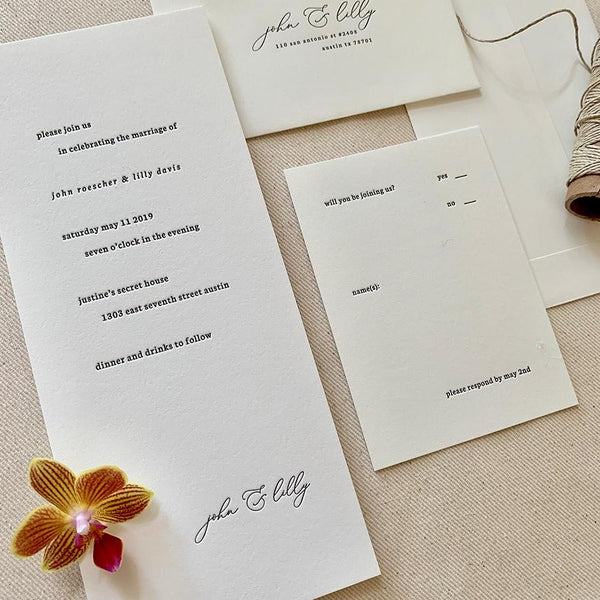 please join us
in celebrating the marriage of
john roescher & lilly davis
saturday may 11 2019
seven o'clock in the evening
justine's secret house
1303 east seventh street austin
dinner and drinks to follow
john & lilly
john & lilly
110 san antonio st #2408
austin tx 78701
will you be joining us?
yes __
no __
name(s):
please respond by may 2nd